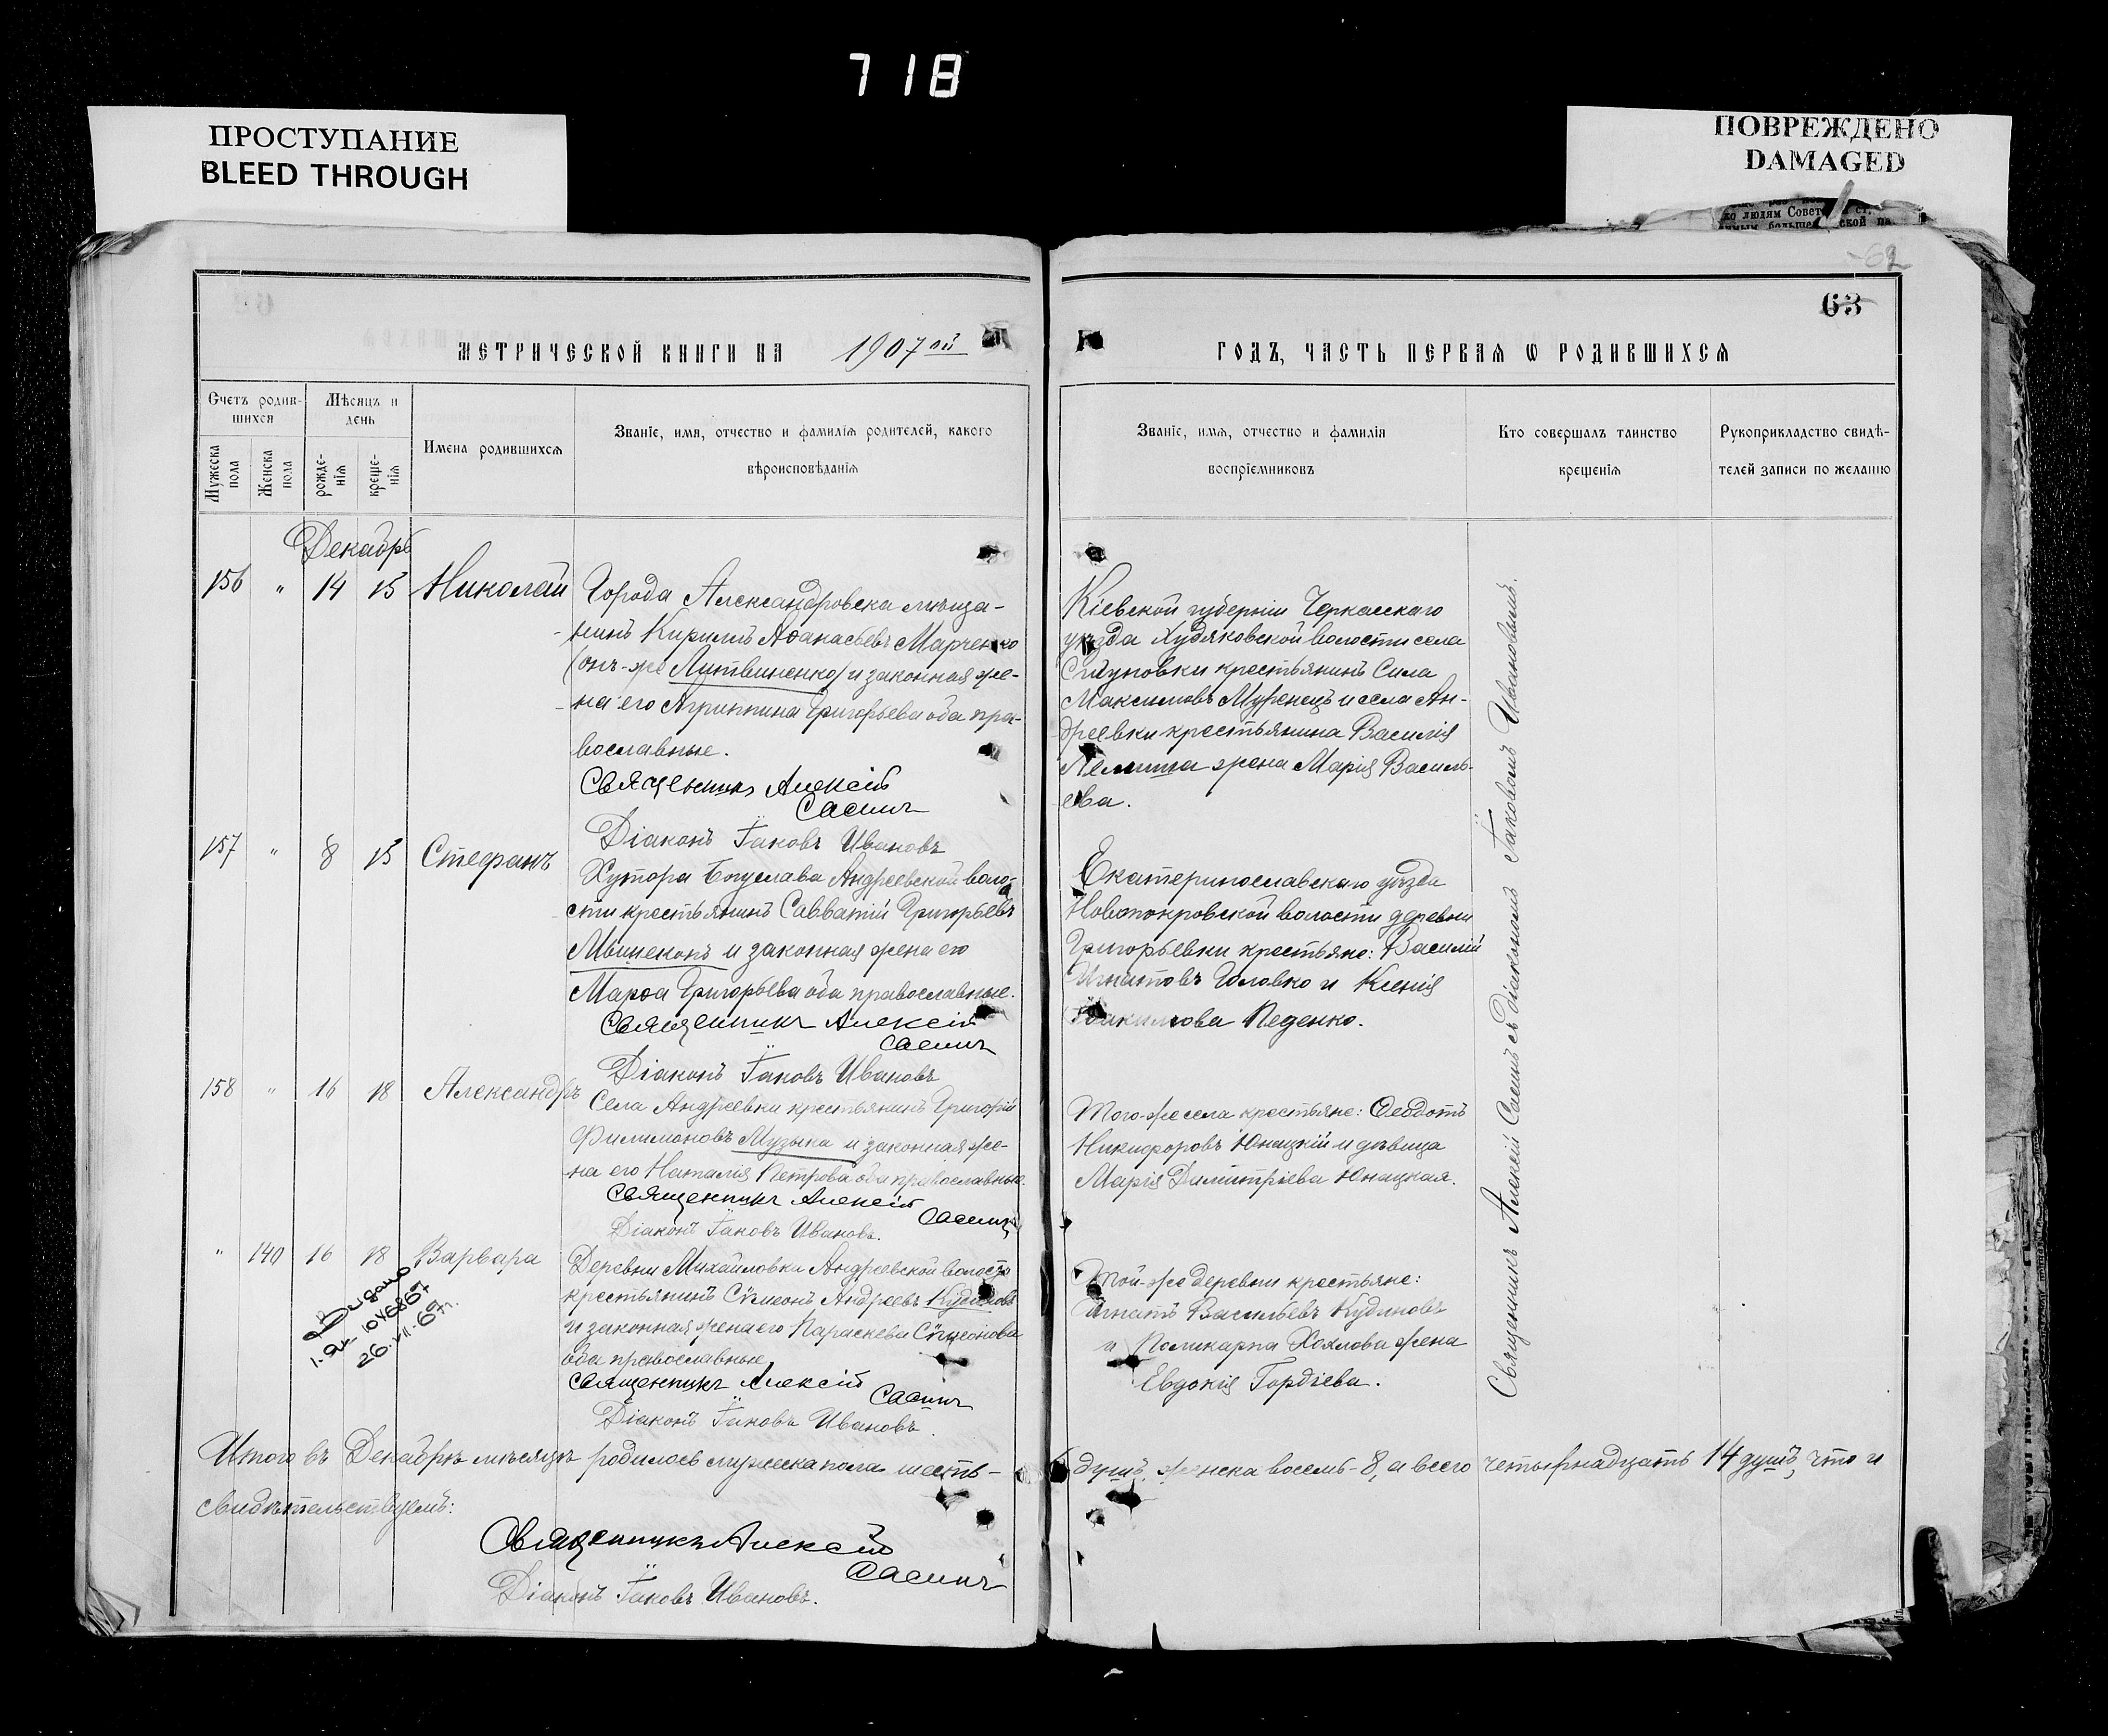 718
ПРОСТУПАНИЕ
BLEED THROUGH
ПОВРЕЖДЕНО
DAMAGED
ко людям Совет
62
63
МЕТРИЧЕСКОЙ КНИГИ НА 1907ой
ГОДЪ, ЧАСТЬ ПЕРВАЯ Ѡ РОДИВШИХСЯ
Счетъ родив-
шихся
Мѣсяцъ и
день
Мужеска
пола
Женска
пола
рожде-
нія
креще-
нія
Имена родившихся
Званіе, имя, отчество и фамилія родителей, какого
вѣроисповѣданія
Званіе, имя, отчество и фамилія
воспріемниковъ
Кто совершалъ таинство
крещенія
Рукоприкладство свидѣ-
телей записи по желанію
Декабрь
156 " 14 15 Николай
Города Александровска мѣща-
нинъ Кириллъ Аѳанасьевъ Марченко
(онъ-же Литвиненко) и законная же-
на его Агриппина Григорьева оба пра-
вославные.
Священникъ Алексій
Саенъ
Діаконъ Іаковъ Ивановъ
Кіевской губерніи Черкасскаго
уѣзда Худяковской волости села
крестьянинъ Сила
Максимовъ Муренецъ и села Ан-
дреевки крестьянина Василія
жена Марія Василь-
ева.
157 " 8 15 Стефанъ
Хутора Богуслава Андреевской воло-
сти крестьянинъ Савватій Григорьевъ
и законная жена его
Марѳа Григорьева оба православные.
Священникъ Алексій
Саенъ
Діаконъ Іаковъ Ивановъ
Екатеринославскаго уѣзда
Новопокровской волости деревни
Григорьевки крестьяне: Василій
Игнатовъ Головко и Ксенія
Педенко.
158 " 16 18 Александръ
Села Андреевки крестьянинъ Григорій
Филимоновъ Музыка и законная же-
на его Наталія Петрова оба православные.
Священникъ Алексій
Саенъ
Діаконъ Іаковъ Ивановъ.
Того-же села крестьяне: Ѳеодотъ
Никифоровъ Юнацкій и дѣвица
Марія Димитріева Юнацкая.
" 140 16 18 Варвара
Деревни Михайловки Андреевской волости
крестьянинъ Сѵмеонъ Андреевъ Кудиновъ
и законная жена его Параскева Сѵмеонова
оба православные
Священникъ Алексій
Саенъ
Діаконъ Іаковъ Ивановъ.
Той-же деревни крестьяне:
Игнатъ Васильевъ Кудиновъ
и Поликарпа Хохлова жена
Евдокія Гордіева.
Видано
1-ЯИ 1046867
26.VII.67г.
Священникъ Алексій Саенъ съ діакономъ Іаковомъ Ивановымъ.
Итого въ Декабрѣ мѣсяцѣ родилось мужеска пола шесть-
6 душъ, женска восемь-8, а всего четырнадцать 14 душъ, что и
свидѣтельствуемъ:
Священникъ Алексій
Саенъ
Діаконъ Іаковъ Ивановъ.